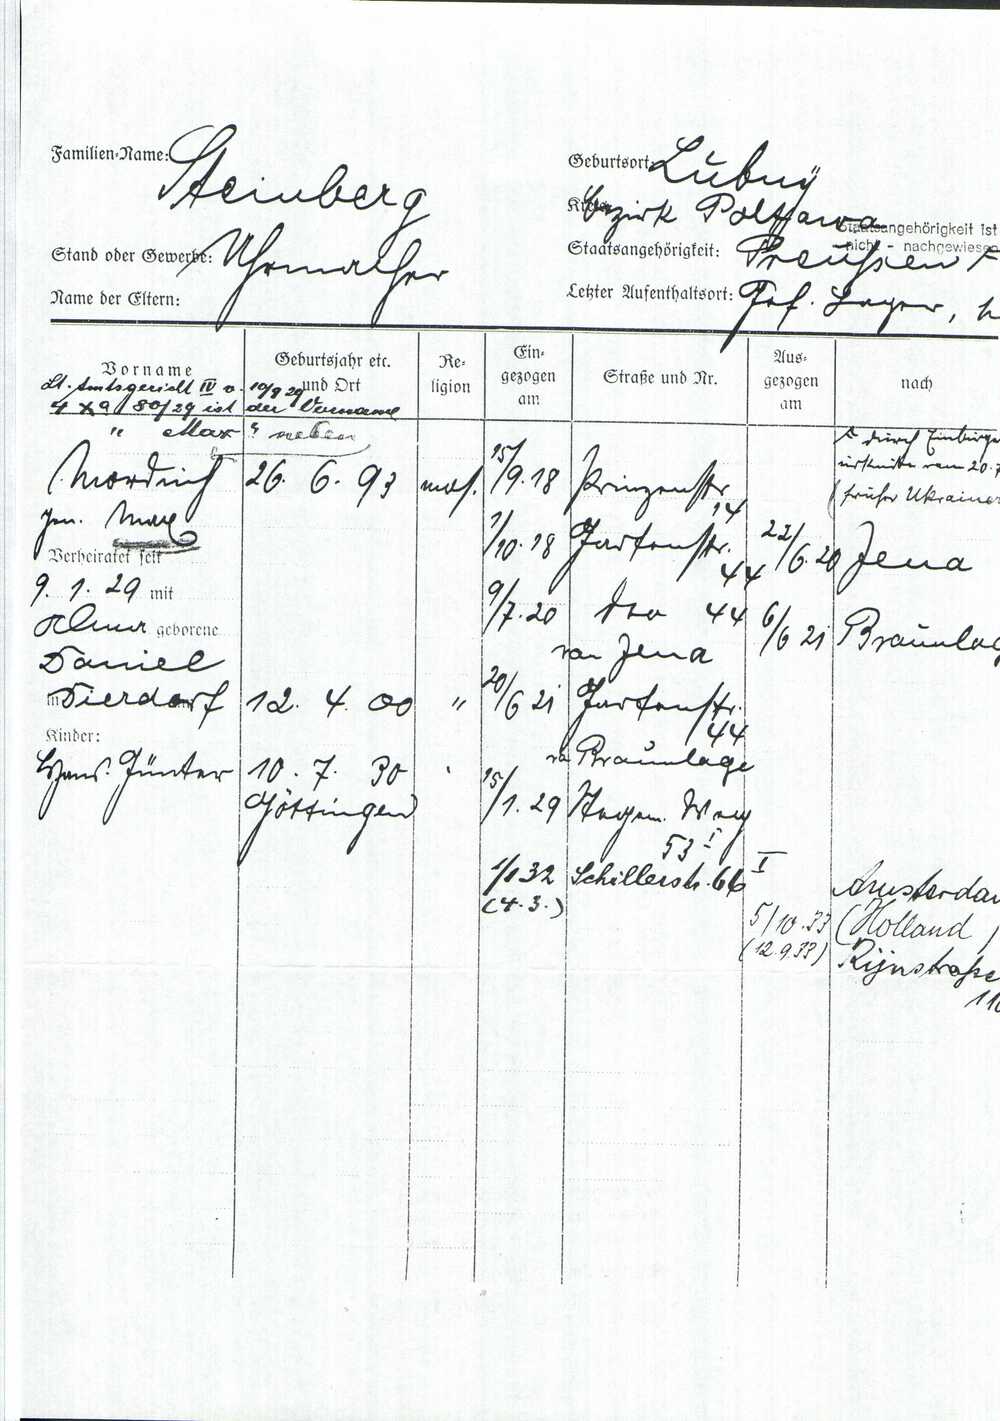 Familien-Name: Steinberg
Geburtsort: Lubny
Kreis: Bezirk Poltawa
Stand oder Gewerbe: Uhrmacher
Staatsangehörigkeit ist
nicht - nachgewiesen
Staatsangehörigkeit: Preußen
Name der Eltern:
Letzter Aufenthaltsort: Gef. Lager,
Vorname
Geburtsjahr etc. und Ort
Re-ligion
Ein-gezogen am
Straße und Nr.
Aus-gezogen am
nach
Lt. Amtsgericht IV v. 10/9 29
4 X 9 80/29 ist der Vorname
" Max " neben
durch Einbürge
urkunde vom 20.7
(früher Ukrainer
Morduch 26. 6. 93 mos. 15/9.18 Prinzenstr. 14
gen. Max 1/10.18 Gartenstr. 44 22/6.20 Jena
Verheiratet seit
9. 1. 29 mit 9/7.20 dto 44 6/6 21 Braunlag
Alma geborene von Jena
Daniel
in Dierdorf 12. 4. 00 " 20/6 21 Gartenstr. 44
Kinder: von Braunlage
Hans. Günter 10. 7. 30 15/1.29 Hagem. Weg
Göttingen 53 I
1/1 32 Schillerstr. 66 I Amsterdam
(4.3.) 5/10.33 (Holland)
(12.9.33) Rijnstraße
110